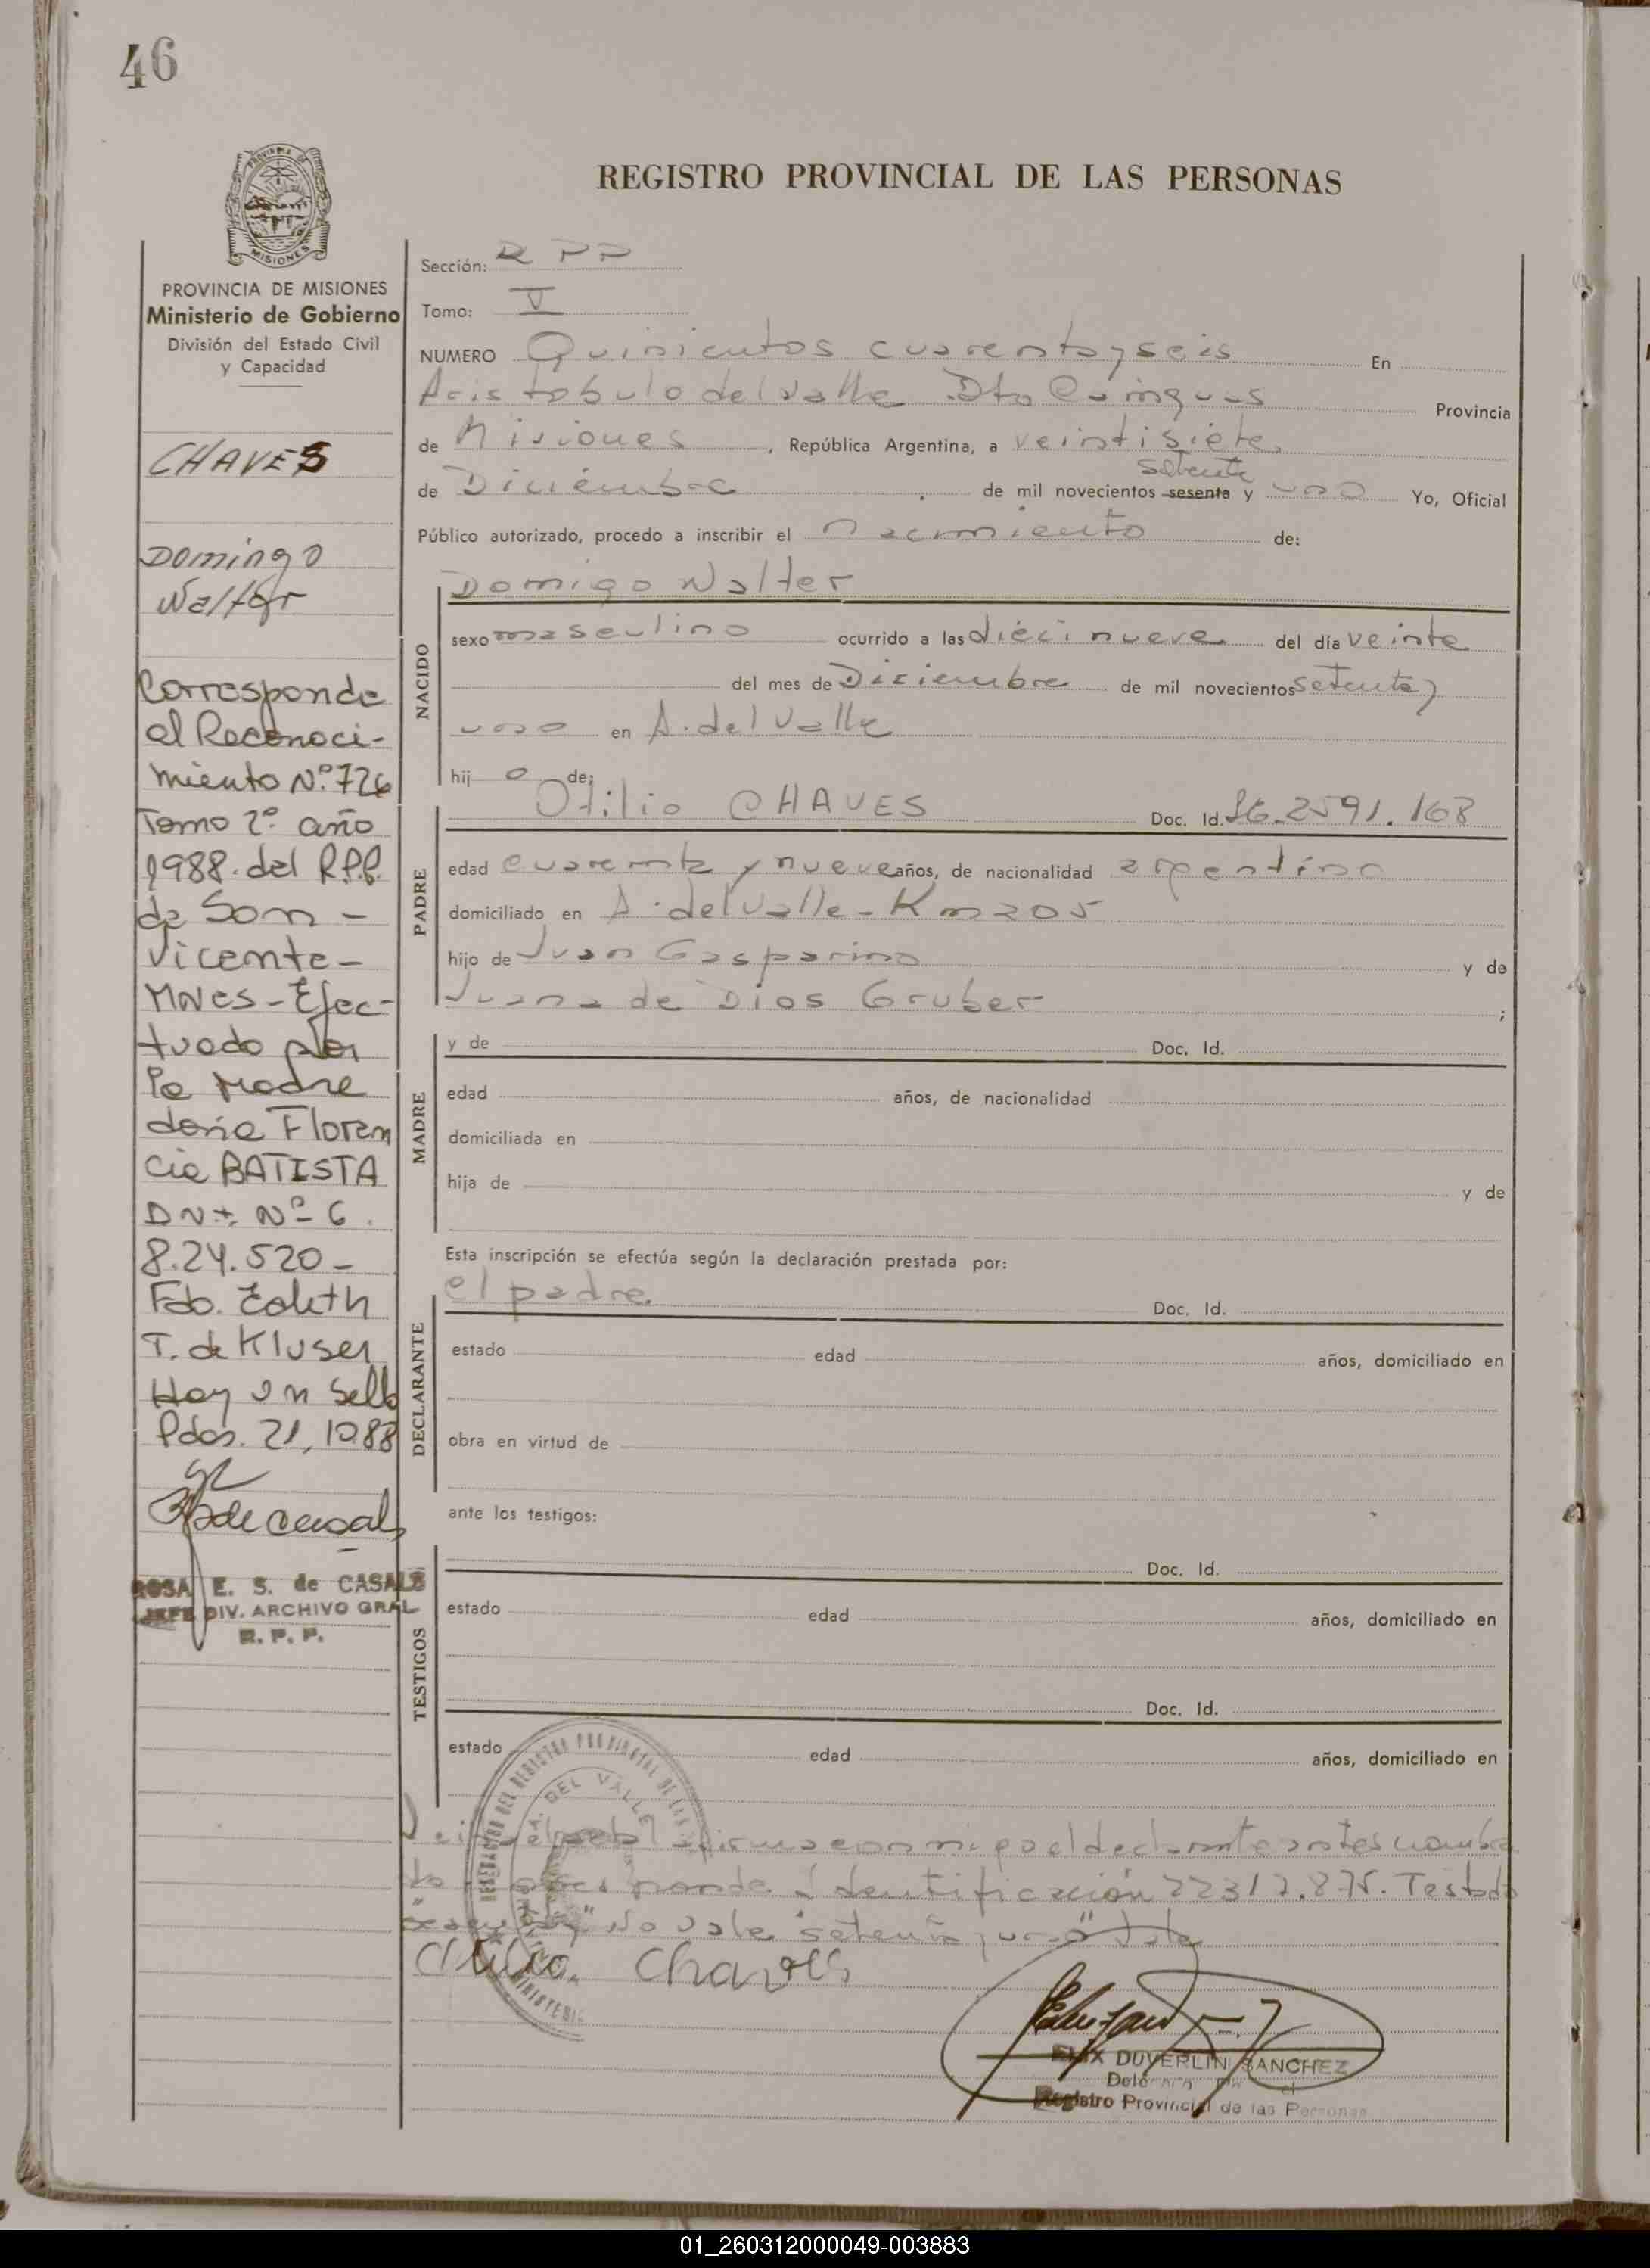 46
REGISTRO PROVINCIAL DE LAS PERSONAS
PROVINCIA DE MISIONES
Ministerio de Gobierno
División del Estado Civil
y Capacidad
CHAVES
Domingo
Walter
Corresponde
al Reconoci-
miento Nº 726
Tomo 2º año
1988. del R.P.P.
de San -
Vicente -
Mnes - Efec-
tuado por
la Madre
doña Floren
cia BATISTA
DNI. Nº 6.
8.24.520 -
Fdo. Edith
T. de Kluser
Hay un sello
Pdas. 21, 10.88
ROSA E. S. de CASALS
JEFE DIV. ARCHIVO GRAL
R. P. P.
Sección: R P P
Tomo: V
NUMERO Quinientos cuarentayseis En
Aristobulo del Valle Dto Cainguas Provincia
de Misiones, República Argentina, a veintisiete
setenta
de Diciembre de mil novecientos sesenta y uno Yo, Oficial
Público autorizado, procedo a inscribir el nacimiento de:
Domigo Walter
NACIDO
sexo masculino ocurrido a las diecinueve del día veinte
del mes de Diciembre de mil novecientos setenta y
uno en A. del Valle
hijo de:
PADRE
Otilio CHAVES Doc. Id. 2591.168
edad cuarenta y nueve años, de nacionalidad argentina
domiciliado en A. del Valle - Km 205
hijo de Juan Gasparino y de
Juana de Dios Gruber ;
MADRE
y de Doc. Id.
edad años, de nacionalidad
domiciliada en
hija de y de
Esta inscripción se efectúa según la declaración prestada por:
el padre. Doc. Id.
DECLARANTE
estado edad años, domiciliado en
obra en virtud de
ante los testigos:
TESTIGOS
Doc. Id.
estado edad años, domiciliado en
Doc. Id.
estado edad años, domiciliado en
firma conmigo el declarante antes nombra
do identificación 22317.875. Testado
No vale "setenta y uno" Vale
Otilio Chaves
A. DEL VALLE
FELIX DUVERLIN SANCHEZ
Registro Provincial de las Personas
01_260312000049-003883